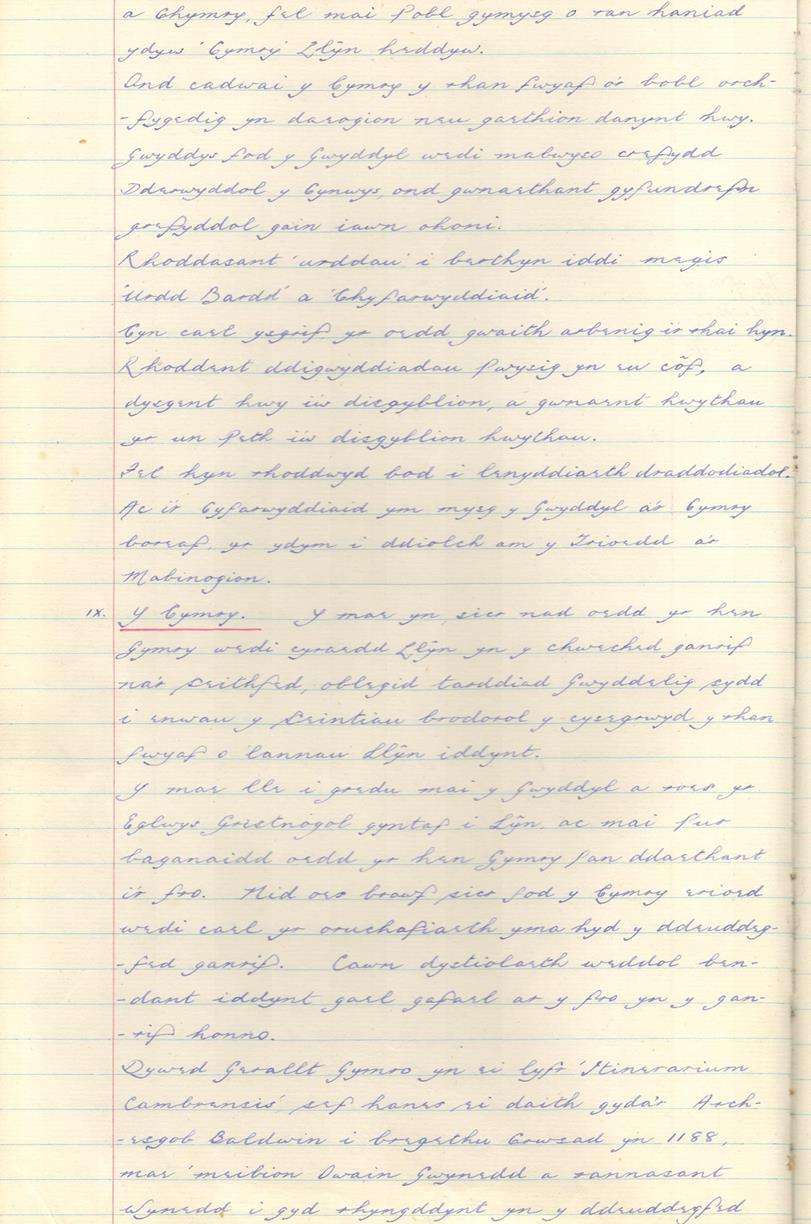 a Chymry, fel mai Pobl gymysg o ran haniad
ydyw 'Cymry' Llŷn heddyw.
Ond cadwai y Cymry y rhan fwyaf o'r bobl orch-
-fygedig yn daeogion neu gaethion danynt hwy.
Gwyddys fod y Gwyddyl wedi mabwyso crefydd
Dderwyddol y Cynwys, ond gwnaethant gyfundrefn
grefyddol gain iawn ohoni.
Rhoddasant 'urddau' i berthyn iddi megis
'Urdd Bardd' a 'Chyfarwyddiaid'.
Cyn cael ysgrif yr oedd gwaith arbenig i'r rhai hyn.
Rhoddent ddigwyddiadau Pwysig yn eu côf, a
dysgent hwy i'w disgyblion, a gwnaent hwythau
yr un Peth i'w disgyblion hwythau.
Fel hyn rhoddwyd bod i lenyddiaeth draddodiadol.
Ac i'r Cyfarwyddiaid ym mysg y Gwyddyl a'r Cymry
boreaf, yr ydym i ddiolch am y Trioedd a'r
Mabinogion.
IX. Y Cymry. Y mae yn sicr nad oedd yr hen
Gymry wedi cyraedd Llŷn yn y chweched ganrif
na'r seithfed, oblegid tarddiad Gwyddelig sydd
i enwau y Seintiau brodorol y cysegrwyd y rhan
fwyaf o lannau Llŷn iddynt.
Y mae lle i gredu mai y Gwyddyl a roes yr
Eglwys Gristnogol gyntaf i Lŷn, ac mai pur
baganaidd oedd yr hen Gymry pan ddaethant
i'r fro. Nid oes brawf sicr fod y Cymry erioed
wedi cael yr oruchafiaeth yma hyd y ddeuddeg-
-fed ganrif. Cawn dystiolaeth weddol ben-
-dant iddynt gael gafael ar y fro yn y gan-
-rif honno.
Dywed Gerallt Gymro yn ei lyfr 'Itinerarium
Cambrensis', sef hanes ei daith gyda'r Arch-
-esgob Baldwin i bregethu Crwsad yn 1188,
mae 'meibion Owain Gwynedd a rannasant
Wynedd i gyd rhyngddynt yn y ddeuddegfed